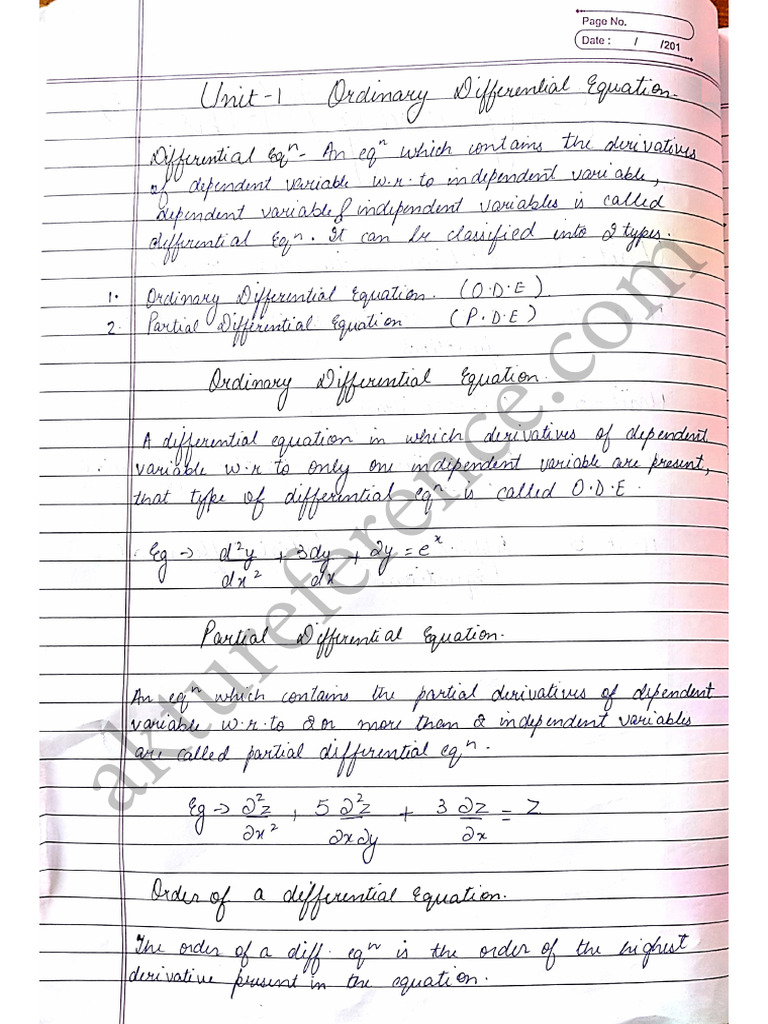 Page No.
Date : / /201
Unit-1 Ordinary Differential Equation.
Differential Eqⁿ - An eqⁿ which contains the derivatives
of dependent variable w.r.to independent variable,
dependent variable & independent variables is called
differential Eqⁿ. It can be classified into 2 types.
1. Ordinary Differential Equation. (O.D.E).
2. Partial Differential Equation (P.D.E)
Ordinary Differential Equation.
A differential equation in which derivatives of dependent
variable w.r to only one independent variable are present,
that type of differential eqⁿ is called O.D.E.
Eg → d²y/dx² + 3dy/dx + 2y = eˣ
Partial Differential Equation.
An eqⁿ which contains the partial derivatives of dependent
variable w.r.to 2 or more than 2 independent variables
are called partial differential eqⁿ.
Eg → ∂²z/∂x² , 5 ∂²z/∂x∂y + 3 ∂z/∂x = Z
Order of a differential Equation.
The order of a diff. eqⁿ is the order of the highest
derivative present in the equation.
aktureference.com